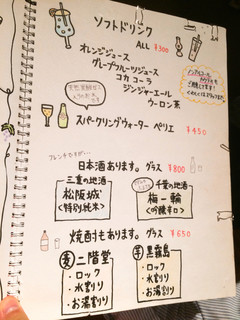 ソフトドリンク
ALL ¥300
オレンジジュース
グレープフルーツジュース
コカコーラ
ジンジャーエール
ウーロン茶
スパークリングウォーター ペリエ
¥450
フレンチですが…
日本酒あります。グラス ¥800
三重の地酒
松阪城
<特別純米>
千葉の地酒
梅一輪
<吟醸辛口>
焼酎もあります。グラス ¥650
麦 二階堂
・ロック
・水割り
・お湯割り
芋 黒霧島
・ロック
・水割り
・お湯割り